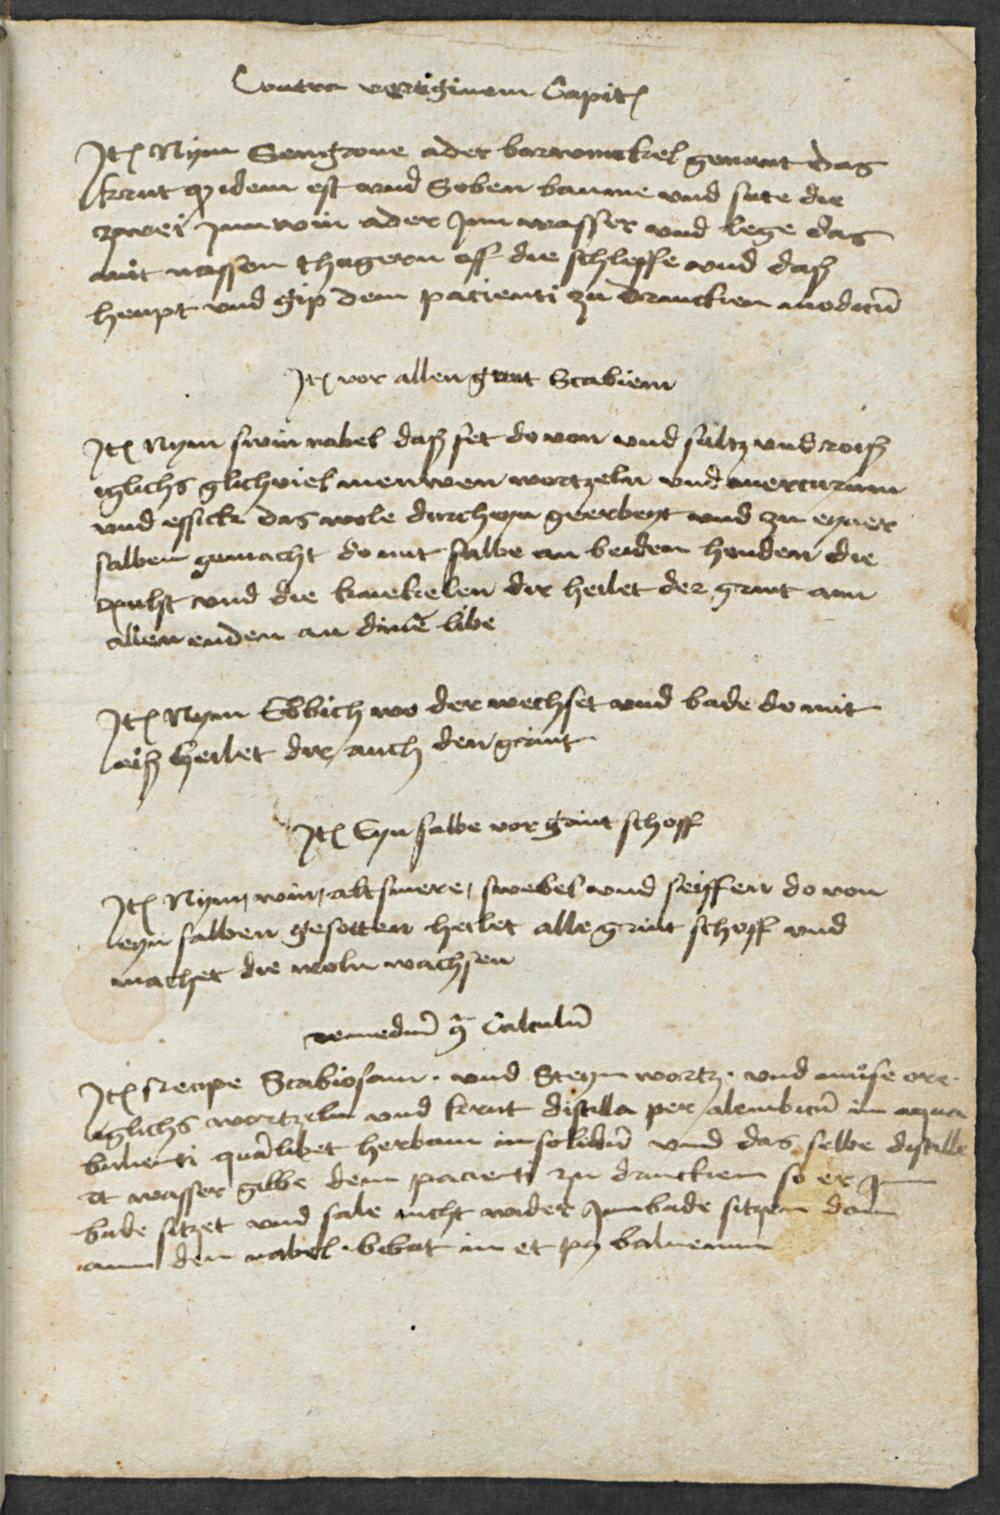 Contra vertiginem Capit(is)
It(em) Nym Sengrone ader berwinckel genant das
krut q(uod) idem est vnd Seben baume vnd sute die
zwei jnn win ader Jnn wasser vnd lege das
mit nassen thugern off die schleffe vnd daß
heupt vnd gip dem pacienti zu drincken modicu(m)
It(em) vor allen grint Scabiem
It(em) Nym swin nabel daß fet do von vnd saltz vnd roiß
iglichs glichviel menwen wortzeln vnd mercurium
vnd essick das wole durcheyn geerbeyt vnd zu eyner
salben gemacht do mit salbe an beiden henden die
pulst vnd die knekelen dir heilet der grint am
allen enden an dine(m) libe
It(em) Nym Ebbich wo der wechset vnd bade do mit
eiß heilet dir auch den grint
It(em) Eyn salbe vor grint schoff
It(em) Nym, win, alt smere, swebel vnd seiffen do von
eyn salben gesotten heilet alle grint schoff vnd
machet die woln wachsen
remediu(m) (contra) Calculu(m)
It(em) Recipe Scabiosam . vnd Steyn wortz . vnd muse ore .
iglichs wortzeln vnd krut distilla per alembicu(m) in aqua
bulienti qua(m)libet herbam in solidu(m) vnd das selbe distille
et wasser gebbe dem pacienti zu drincken so er Jm
bade sitzet vnd sale nicht wider Jm bade sitzen dan
ann den nabel . bibat in et p(ost) balneum